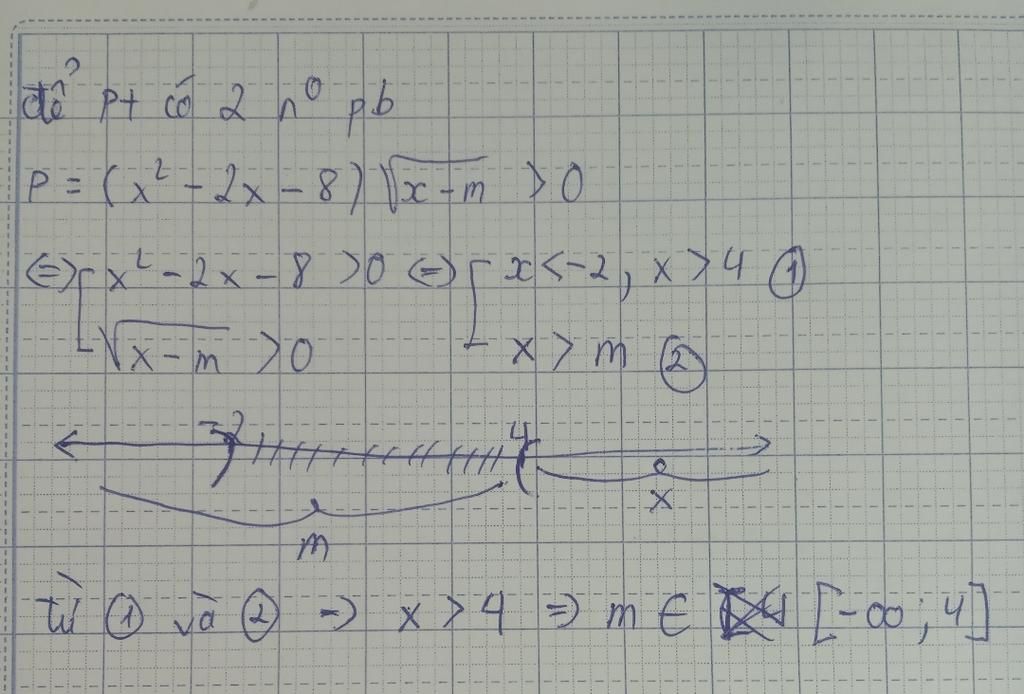 để pt có 2 n⁰ pb
P = (x² - 2x - 8) √(x-m) > 0
⇔ [ x² - 2x - 8 > 0 ⇔ [ x < -2, x > 4 ①
√(x-m) > 0 x > m ②
-2 4
m x
Từ ① và ② ⇒ x > 4 ⇒ m ∈ [-∞; 4]